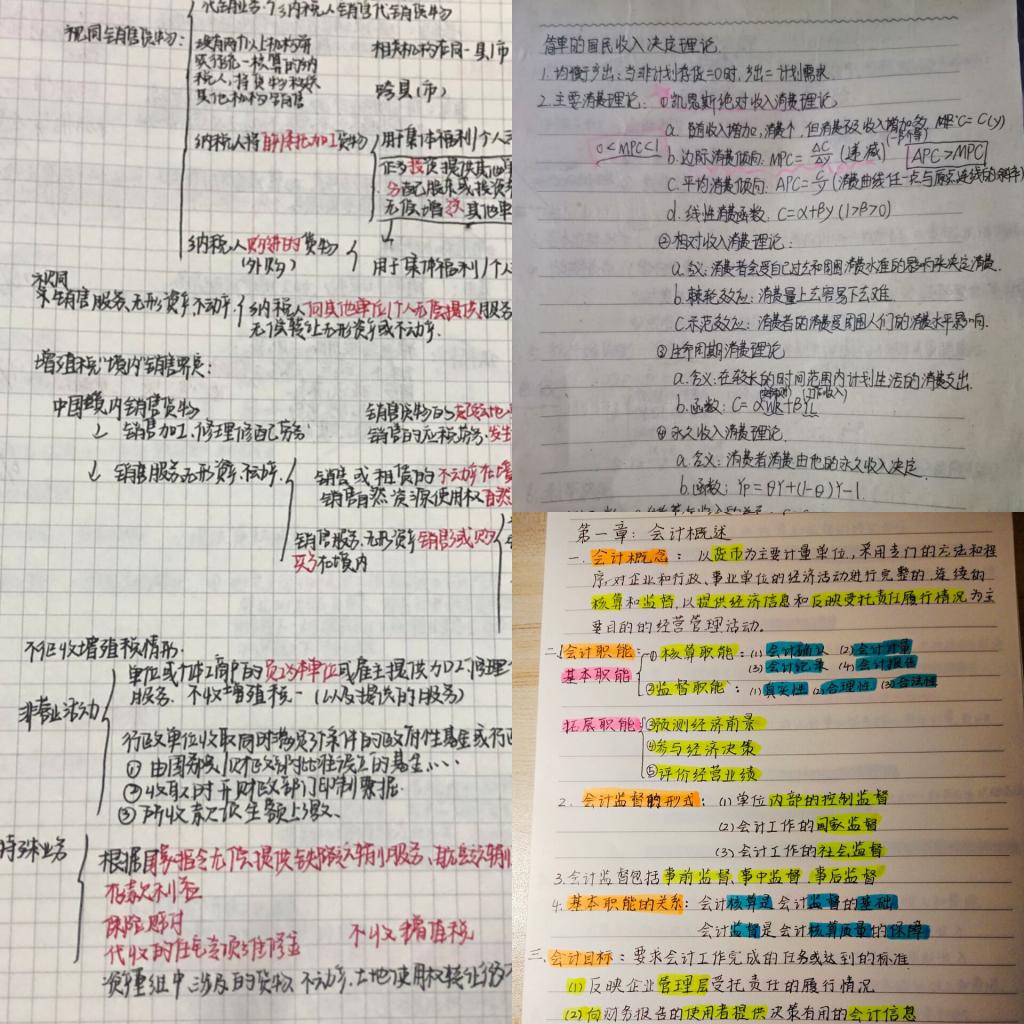 代销业务
视同销售货物：
设有两个以上机构并
实行统一核算的纳
税人，将货物移送
其他机构销售
相关机构在同一县(市)
跨县(市)
纳税人将自产/委托加工货物
用于集体福利/个人
无偿赠送其他单
纳税人购进的货物
(外购)
用于集体福利/个人
视同
销售服务、无形资产、不动产
纳税人向其他单位/个人无偿提供服务
无偿转让无形资产或不动产.
增值税"境内"销售界定：
中国境内销售货物
销售加工、修理修配劳务
销售货物的起运地
销售的应税劳务发生
销售服务、无形资产、不动产
销售或租赁的不动产在境
销售自然资源使用权自然
销售服务、无形资产销售方或购
买方在境内
不征收增值税情形.
非营业活动
单位或个体工商户的员工为本单位或雇主提供加工、修理
服务. 不收增值税 (以及提供的服务)
行政单位收取同时满足条件的政府性基金或行
① 由国务院/财政部批准设立的基金
② 收取时开财政部门印制票据.
③ 所收款项全额上缴.
特殊业务
根据国家指令无偿提供铁路运输服务、航空运输
存款利息
保险赔付
代收的住宅专项维修金
不收增值税
资产重组中涉及的货物、不动产、土地使用权转让行为不
简单的国民收入决定理论.
1. 均衡产出：当非计划存货=0时，产出=计划需求.
2. 主要消费理论：①凯恩斯绝对收入消费理论
a. 随收入增加，消费个，但消费不及收入增加多 C=C(y)
0<MPC<1
b. 边际消费倾向：MPC=ΔC/Δy (递减) APC>MPC
c. 平均消费倾向：APC=C/y (消费曲线任一点与原点连线的斜率)
d. 线性消费函数. C=α+βy (1>β>0)
②相对收入消费理论：
a. 含义：消费者会受自己过去和周围消费水准的影响来决定消费.
b. 棘轮效应：消费量上去容易下去难.
c. 示范效应：消费者的消费受周围人们的消费水平影响.
③生命周期消费理论
a. 含义：在较长的时间范围内计划生活的消费支出.
b. 函数：C=αWR+βYL
④永久收入消费理论.
a. 含义：消费者消费由他的永久收入决定
b. 函数：Yp=θY+(1-θ)Y-1
第一章：会计概述
一. 会计概念：以货币为主要计量单位，采用专门的方法和程
序，对企业和行政、事业单位的经济活动进行完整的、连续的
核算和监督，以提供经济信息和反映受托责任履行情况为主
要目的的经营管理活动。
二. 会计职能：
基本职能
①核算职能：(1)会计确认 (2)会计计量
(3)会计记录 (4)会计报告
②监督职能：(1)真实性 (2)合理性 (3)合法性
拓展职能
③预测经济前景
④参与经济决策
⑤评价经营业绩
2. 会计监督的形式：(1)单位内部的控制监督
(2)会计工作的国家监督
(3)会计工作的社会监督
3. 会计监督包括事前监督、事中监督、事后监督
4. 基本职能的关系：会计核算是会计监督的基础
会计监督是会计核算质量的保障
三. 会计目标：要求会计工作完成的任务或达到的标准
(1)反映企业管理层受托责任的履行情况
(2)向财务报告的使用者提供决策有用的会计信息